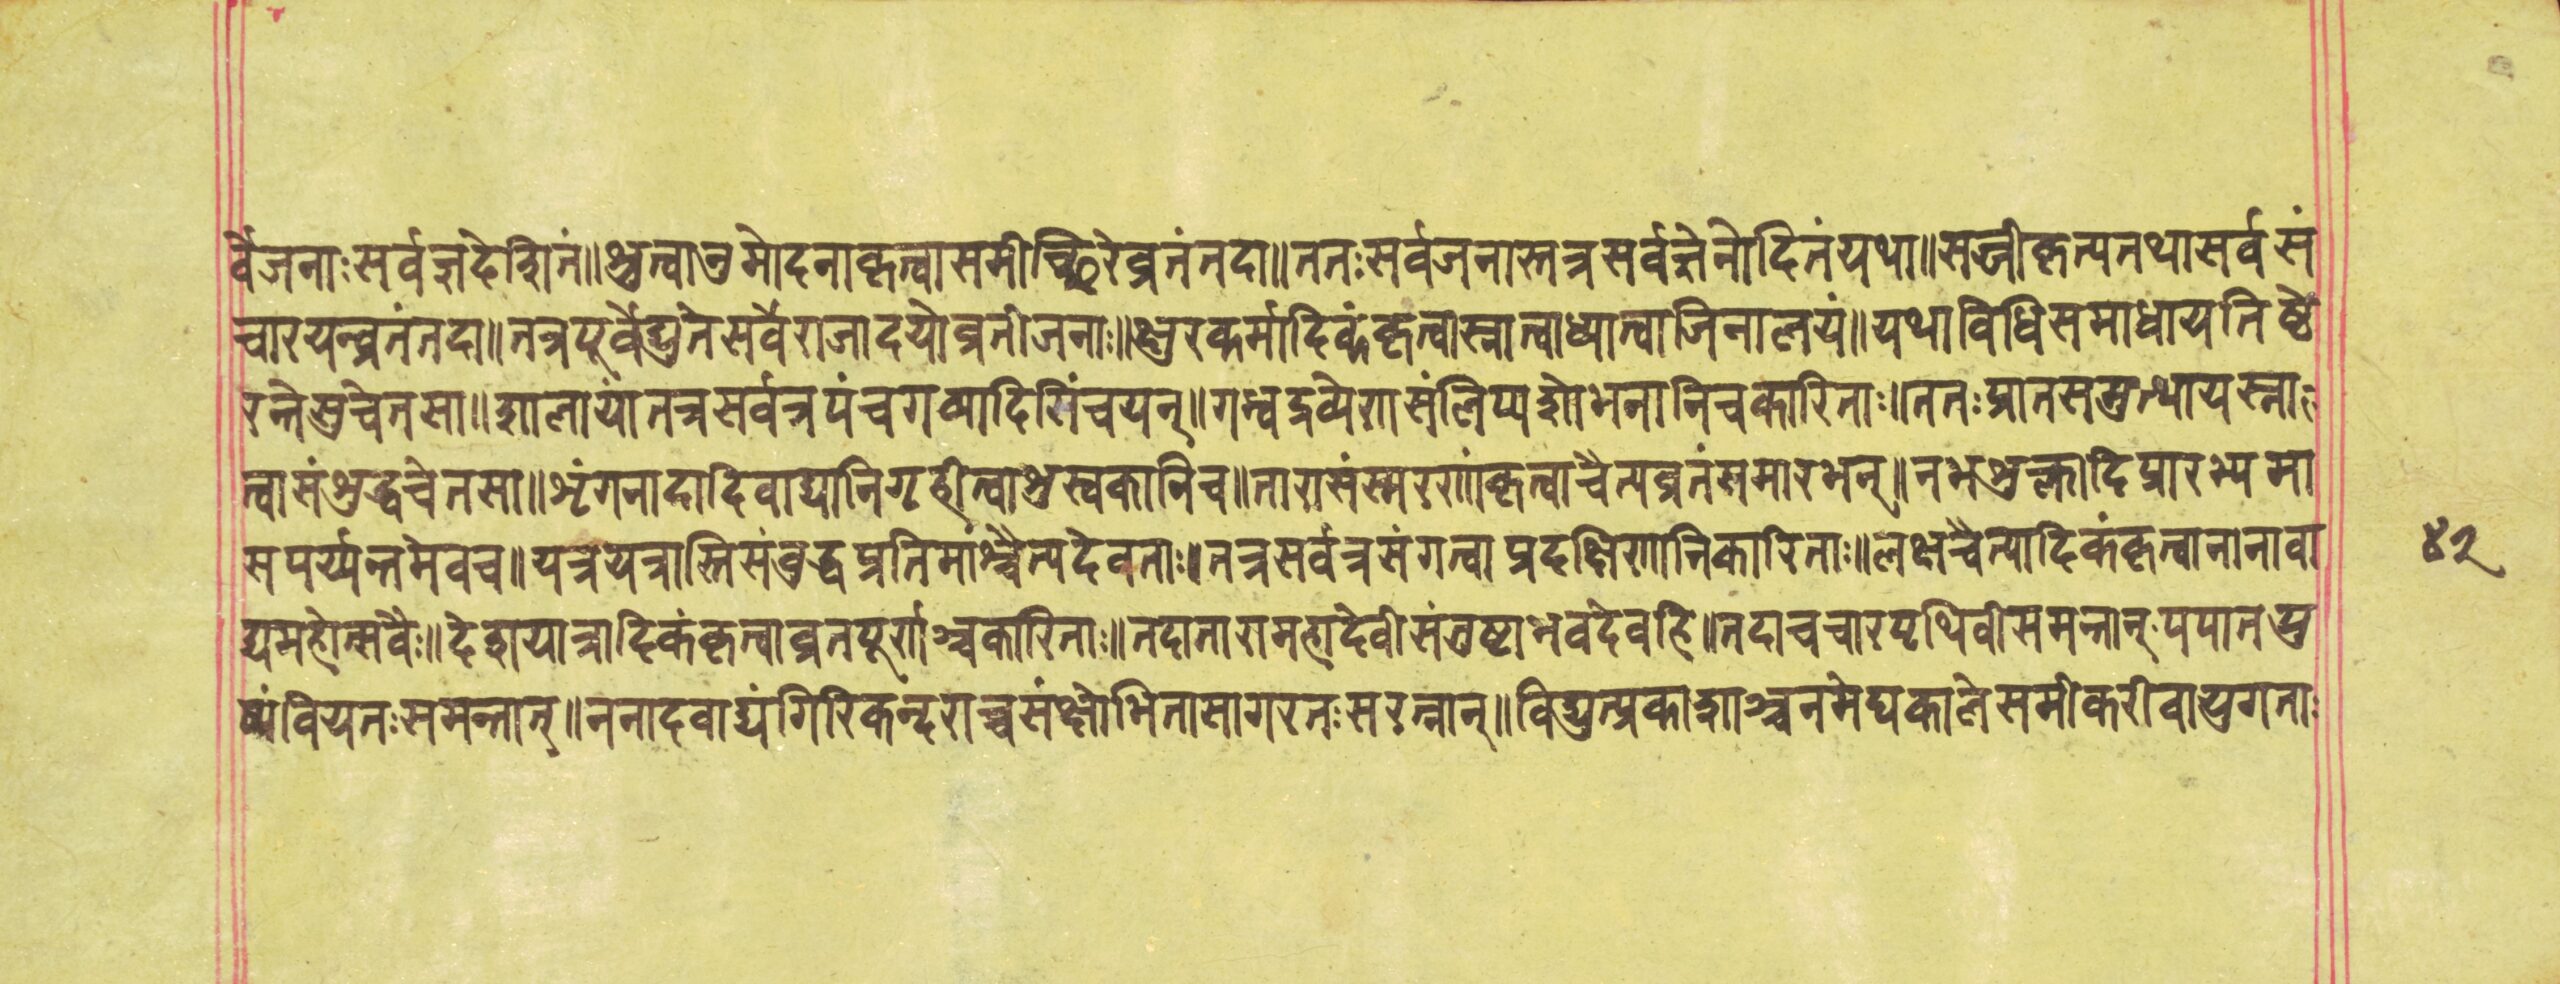 र्वेजनाःसर्वज्ञदेशितं॥श्रुत्वानुमोदनाकृत्वासमीच्छिरेव्रतंतदा॥ततःसर्वजनास्तत्रसर्वज्ञेनोदितंयथा॥सज्जीकृत्यतथासर्वसं
चारयन्व्रतंतदा॥तत्रपूर्वेद्युतेसर्वेराजादयोव्रतीजनाः॥क्षुरकर्मादिकंकृत्वास्नात्वाध्यात्वाजिनालयं॥यथाविधिसमाधायतिष्ठे
रन्तेसुचेतसा॥शालायांतत्रसर्वत्रपंचगव्यादिसिंचयन्॥गन्धद्रव्येणसंलिप्यशोभनानिचकारिताः॥ततःप्रातसमुत्थायस्ना
त्वासंशुद्धचेतसा॥शृंगनादादिवाद्यानिगृहीत्वाशुस्वकानिच॥तारासंस्मरणांकृत्वाचैत्यव्रतंसमारभत्॥नभशुक्लादिप्रारभ्यमा
सपर्य्यन्तमेवच॥यत्रयत्रास्तिसंबुद्धप्रतिमांश्चैत्यदेवताः॥तत्रसर्वत्रसंगत्वाप्रदक्षिणानिकारिताः॥लक्षचैत्यादिकंकृत्वानानावा
द्यमहोत्सवैः॥देशयात्रादिकंकृत्वाव्रतपूर्णाञ्चकारिताः॥तदातारामहादेवीसंतुष्टाभवदेवहि॥तदाचचारपृथिवीसमन्तात्पपातपु
ष्पंवियतःसमन्तात्॥ननादवाद्यंगिरिकन्दराच्चसंक्षोभितासागरतःसरत्नान्॥विद्युत्प्रकाशाञ्चनमेघकालेसमीकरीवायुगताः
४२